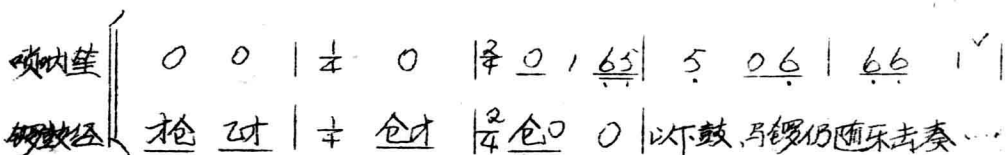 唢呐笙 0 0 | 1/4 0 | 2/4 0 1 65 | 5 06 | 66 1 ˅ |
锣鼓经 抢 乙才 | 1/4 仓才 | 2/4 仓0 0 | 以下鼓、马锣仍随乐击奏…